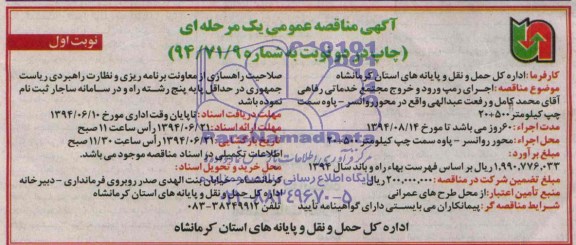 آگهی مناقصه عمومی یک مرحله ای
نوبت اول
(چاپ در دو نوبت به شماره ۹۴/۷۱/۹)
کارفرما: اداره کل حمل و نقل و پایانه های استان کرمانشاه
موضوع مناقصه: اجرای رمپ ورود و خروج مجتمع خدماتی رفاهی
آقای محمد کامل و رفعت عبدالهی واقع در محور روانسر - پاوه سمت
چپ کیلومتر ۲۰+۵۰۰
مدت اجراء: ۶۰ روز می باشد تا مورخ ۱۳۹۴/۰۸/۱۴
محل اجراء: محور روانسر - پاوه سمت چپ کیلومتر ۲۰+۵۰۰
مبلغ برآورد:
۱,۹۹۰,۷۷۶,۰۳۳ ریال بر اساس فهرست بهاء راه و باند سال ۱۳۹۴
مبلغ تضمین شرکت در مناقصه: ۲۰۰,۰۰۰,۰۰۰ ریال
منبع تأمین اعتبار: از محل طرح های عمرانی
شرایط مناقصه گر: پیمانکاران می بایستی دارای گواهینامه تأیید
صلاحیت راهسازی از معاونت برنامه ریزی و نظارت راهبردی ریاست
جمهوری در حداقل پایه پنج رشته راه و در سامانه ساجار ثبت نام
نموده باشد
مهلت دریافت اسناد: تا پایان وقت اداری مورخ ۱۳۹۴/۰۶/۱۰
مهلت ارائه اسناد: ۱۳۹۴/۰۶/۲۱ رأس ساعت ۱۱ صبح
۱۳۹۴/۰۶/۲۱ رأس ساعت ۱۱/۳۰ صبح
اطلاعات تکمیلی در اسناد مناقصه موجود می باشد.
محل خرید و تحویل اسناد:
کرمانشاه - خیابان بنت الهدی صدر روبروی فرمانداری - دبیرخانه
اداره کل حمل و نقل و پایانه های استان کرمانشاه
۰۸۳-۳۸۲۴۹۹۱۲ تلفن
اداره کل حمل و نقل و پایانه های استان کرمانشاه
ParsNamadData
پایگاه اطلاع رسانی
۰۲۱-۸۸۳۴۹۶۷۰-۵